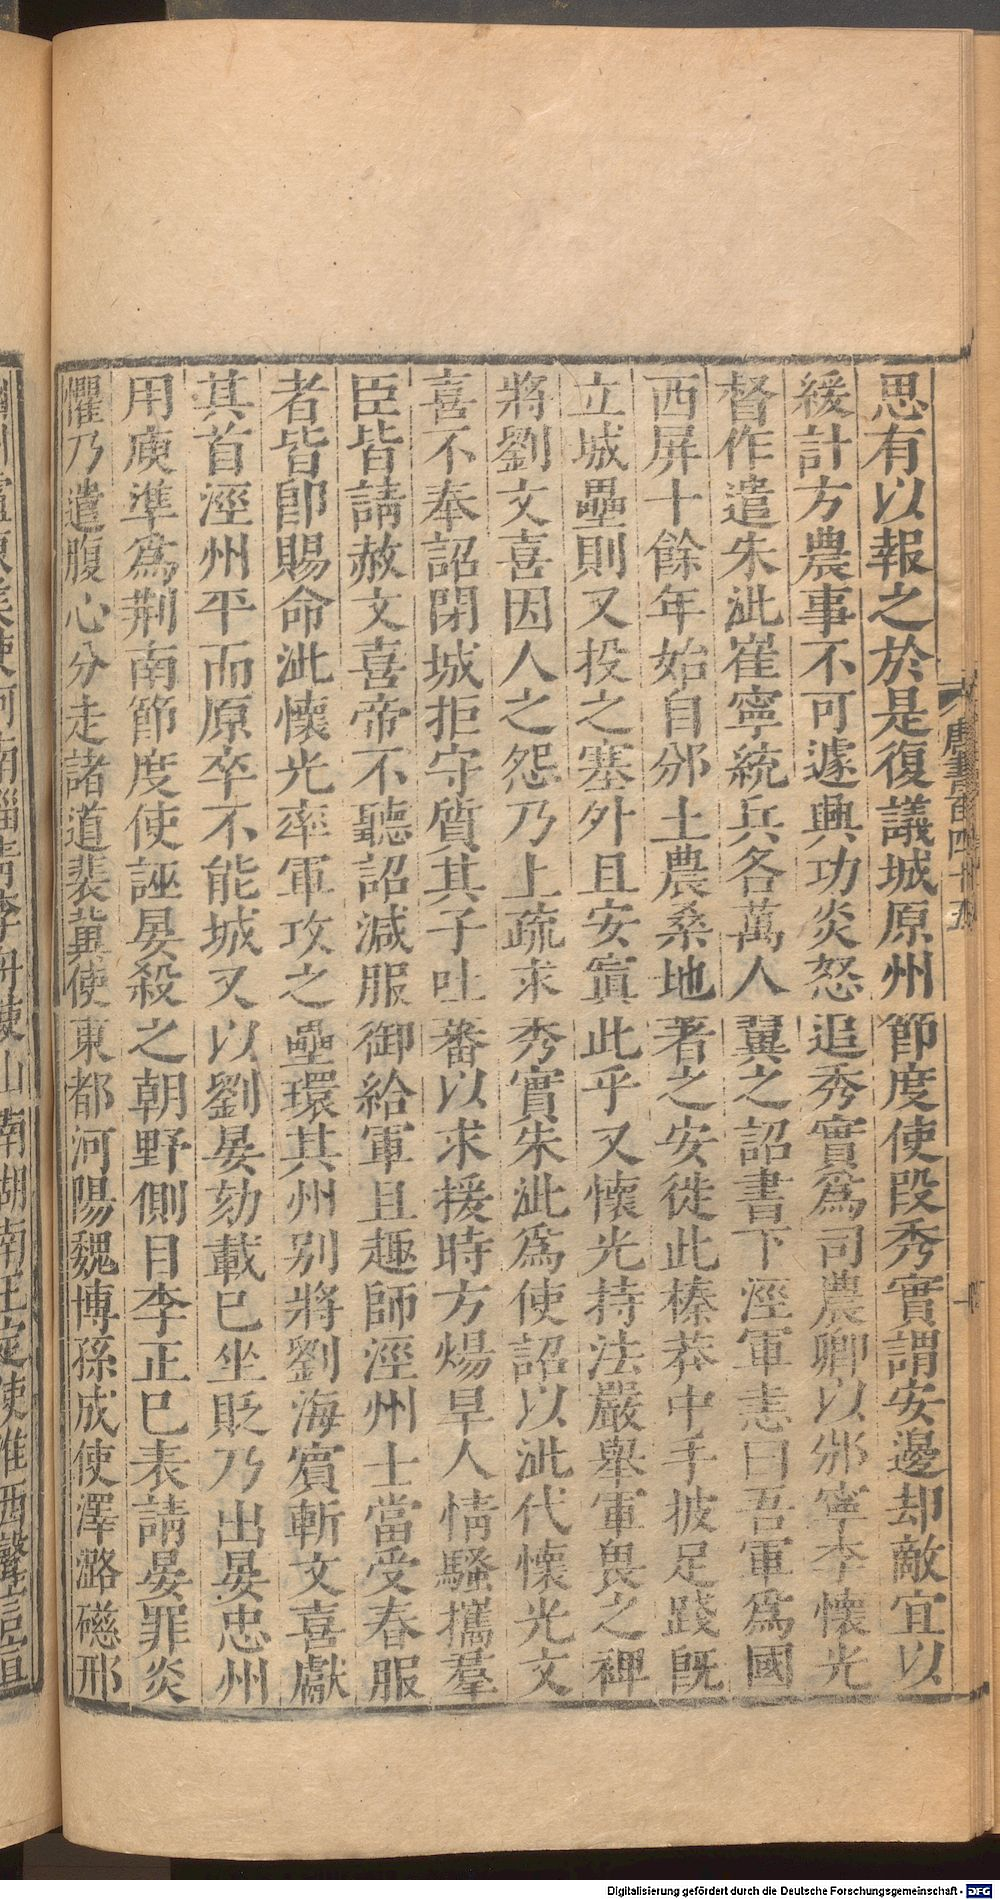 思有以報之於是復議城原州節度使段秀實謂安邊却敵宜以
緩計方農事不可遽興功炎怒追秀實爲司農卿以邠寧李懷光
督作遣朱泚崔寧統兵各萬人翼之詔書下涇軍恚曰吾軍爲國
西屏十餘年始自邠土農桑地著之安徙此榛莽中手披足踐旣
立城壘則又投之塞外且安寘此乎又懷光持法嚴舉軍畏之裨
將劉文喜因人之怨乃上疏求秀實朱泚爲使詔以泚代懷光文
喜不奉詔閉城拒守質其子吐蕃以求援時方煬旱人情騷攜羣
臣皆請赦文喜帝不聽詔減服御給軍且趣師涇州士當受春服
者皆卽賜命泚懷光率軍攻之壘環其州别將劉海賓斬文喜獻
其首涇州平而原卒不能城又以劉晏劾載已坐貶乃出晏忠州
用庾準爲荆南節度使誣晏殺之朝野側目李正巳表請晏罪炎
懼乃遣腹心分走諸道裴冀使東都河陽魏博孫成使澤潞磁邢
唐書百四十五
Digitalisierung gefördert durch die Deutsche Forschungsgemeinschaft - DFG